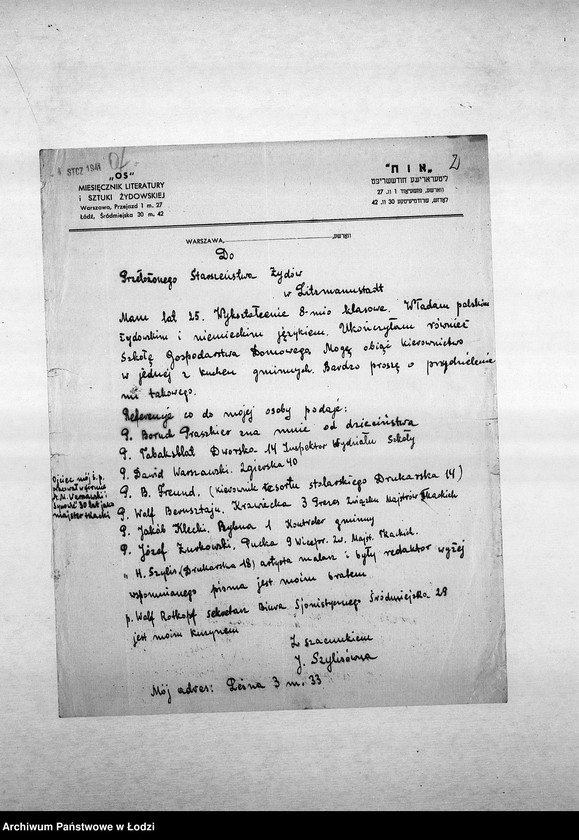 STCZ 1941
2
„OS"
MIESIĘCZNIK LITERATURY
I SZTUKI ŻYDOWSKIEJ
Warszawa, Przejazd 1 m. 27
Łódź, Śródmiejska 30 m. 42
ליטעראַרישע חודששריפט
WARSZAWA,
וואַרשע,
Do
Przełożonego Starszeństwa Żydów
w Litzmannstadt
Mam lat 25. Wykształcenie 8-mio klasowe. Władam polskim
żydowskim i niemieckim językiem. Ukończyłam również
Szkołę Gospodarstwa Domowego. Mogę objąć kierownictwo
w jednej z kuchen gminnych. Bardzo proszę o przydzielenie
mi takowego.
Referencje co do mojej osoby podaję:
P. Boruch Praszkier zna mnie od dzieciństwa
P. Tabaksblat Dworska 14 Inspektor Wydziału Szkoły
P. Dawid Warszawski. Zgierska 40
P. B. Freund. (Kierownik Resortu stolarskiego Drukarska 14)
P. Wolf Bernsztajn. Krawiecka 3 Prezes Związku Majstrów Tkackich
P. Jakób Klecki. Bylena 1 Kontroler gminny
P. Józef Żurkowski. Pucka 9 Wicepr. Zw. Majt. Tkackich.
„ H. Szylis, (Drukarska 18) artysta malarz i były redaktor wyżej
wspomnianego pisma jest moim bratem
p. Wolf Rotkopf sekretarz Biura Sjonistycznego Śródmiejska 28
jest moim kuzynem
Ojciec mój ś.p.
30 lat jako
majster tkacki
Z szacunkiem
J. Szylisówna
Mój adres: Leśna 3 m. 33
Archiwum Państwowe w Łodzi